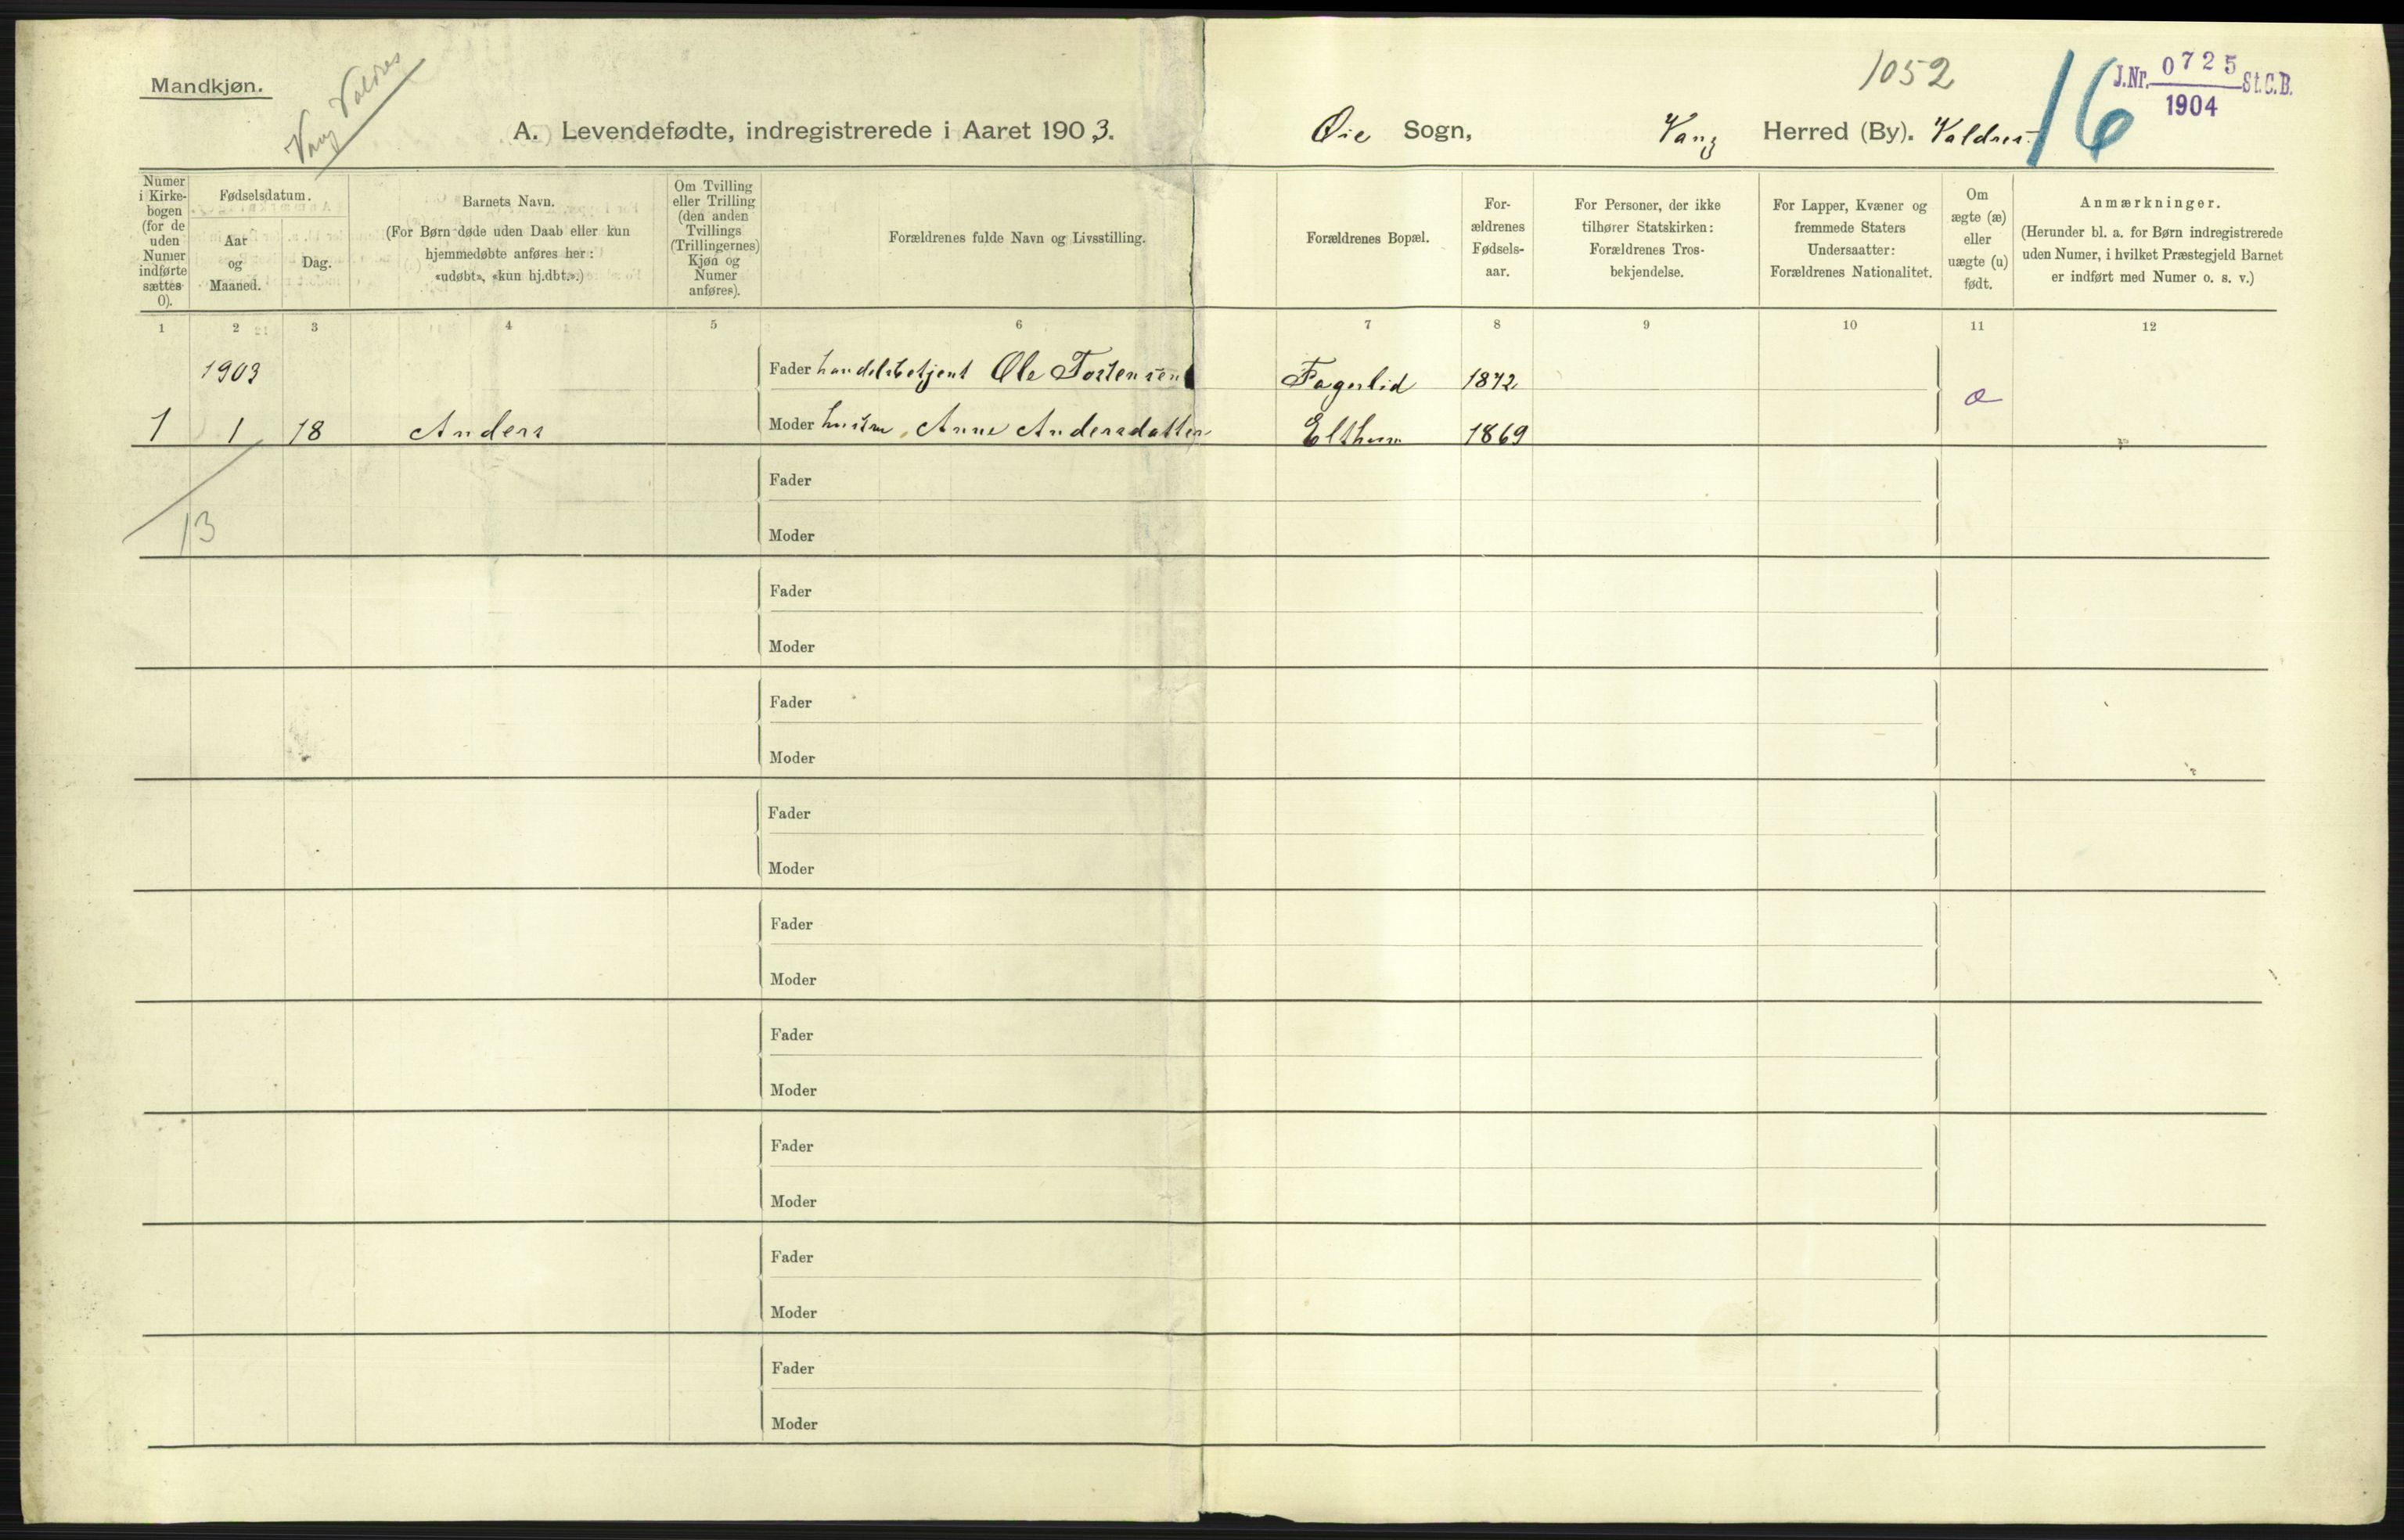 Mandkjøn.
Vang Valdres
1052
16
J.Nr. 0725 St.C.B.
1904
A. Levendefødte, indregistrerede i Aaret 1903. Øie Sogn, Vang Herred (By). Valdres.
Numer i Kirke-bogen (for de uden Numer indførte sættes 0).
Fødselsdatum.
Aar og Maaned.
Dag.
Barnets Navn.
(For Børn døde uden Daab eller kun
hjemmedøbte anføres her:
«udøbt», «kun hj.dbt.».)
Om Tvilling
eller Trilling
(den anden
Tvillings
(Trillingernes)
Kjøn og
Numer
anføres).
Forældrenes fulde Navn og Livsstilling.
Forældrenes Bopæl.
For-
ældrenes
Fødsels-
aar.
For Personer, der ikke
tilhører Statskirken:
Forældrenes Tros-
bekjendelse.
For Lapper, Kvæner og
fremmede Staters
Undersaatter:
Forældrenes Nationalitet.
Om
ægte (æ)
eller
uægte (u)
født.
Anmærkninger.
(Herunder bl. a. for Børn indregistrerede
uden Numer, i hvilket Præstegjeld Barnet
er indført med Numer o. s. v.)
1 2 3 4 5 6 7 8 9 10 11 12
1903 Fader handelsbetjent Ole Tostensen Fagerlid 1872
æ
1 1 18 Anders Moder hustru Anne Andersdatter 1869
13
Fader
Moder
Fader
Moder
Fader
Moder
Fader
Moder
Fader
Moder
Fader
Moder
Fader
Moder
Fader
Moder
Fader
Moder